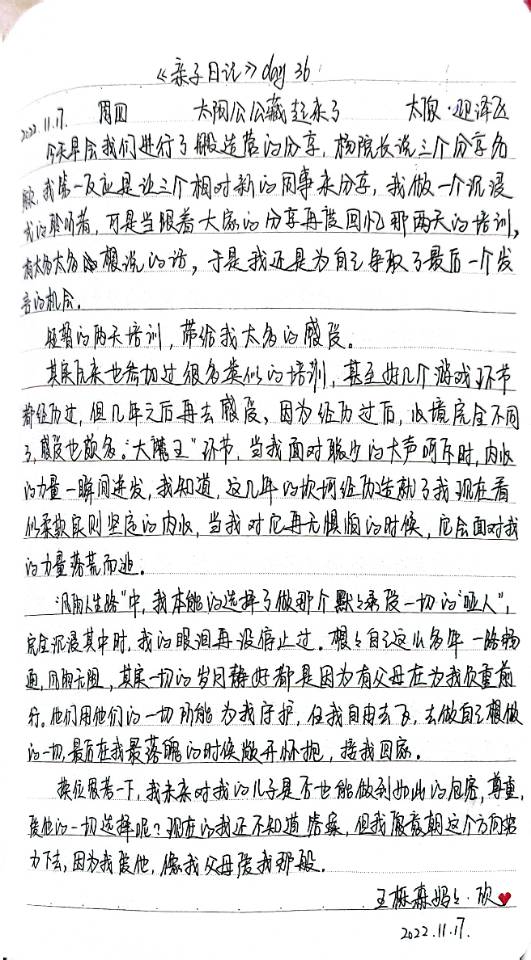 《亲子日记》day 36
2022.11.17. 周四 太阳公公藏起来了 太原·迎泽区
今天早会我们进行了搬造营的分享，杨院长说三个分享名
额，我第一反应是让三个相对新的同事来分享，我做一个沉浸
式的聆听者，可是当跟着大家的分享再度回忆那两天的培训，
有太多太多想说的话，于是我还是为自己争取了最后一个发
言的机会。
短暂的两天培训，带给我太多的感受。
其实历来也参加过很多类似的培训，甚至好几个游戏环节
都经历过，但几年之后再去感受，因为经历过后，心境完全不同
了，感受也颇多。"大魔王"环节，当我面对聪少的大声呵斥时，内心
的力量一瞬间迸发，我知道，这几年的坎坷经历造就了我现在看
似柔软实则坚定的内心，当我对它再无惧怕的时候，它会面对我
的力量落荒而逃。
"风雨人生路"中，我本能的选择了做那个默々承受一切的"哑人"，
完全沉浸其中时，我的眼泪再没停止过。想々自己这么多年一路畅
通，风雨无阻，其实一切的岁月静好都是因为有父母在为我负重前
行。他们用他们的一切所能为我守护，任我自由去飞，去做自己想做
的一切，最后在我最落魄的时候敞开怀抱，接我回家。
换位思考一下，我未来对我的儿子是否也能做到如此的包容，尊重，
爱他的一切选择呢？现在的我还不知道答案，但我愿意朝这个方向努
力下去，因为我爱他，像我父母爱我那般。
王栎森妈々·欣
2022.11.17.